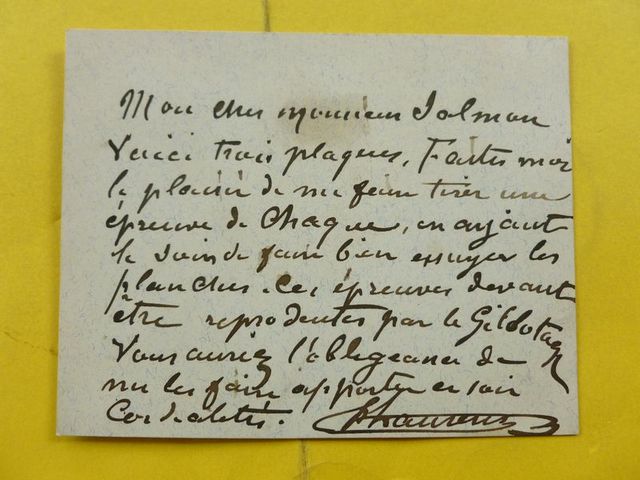 Mon cher monsieur Salmon
Voici trois plaques, Faites moi
le plaisir de me faire tirer une
épreuve de chaque, en ayant
le soin de faire bien essuyer les
planches. Ces épreuves devant
être reproduites par le Gillotage
Vous auriez l'obligeance de
me les faire apporter ce soir
Cordialités.